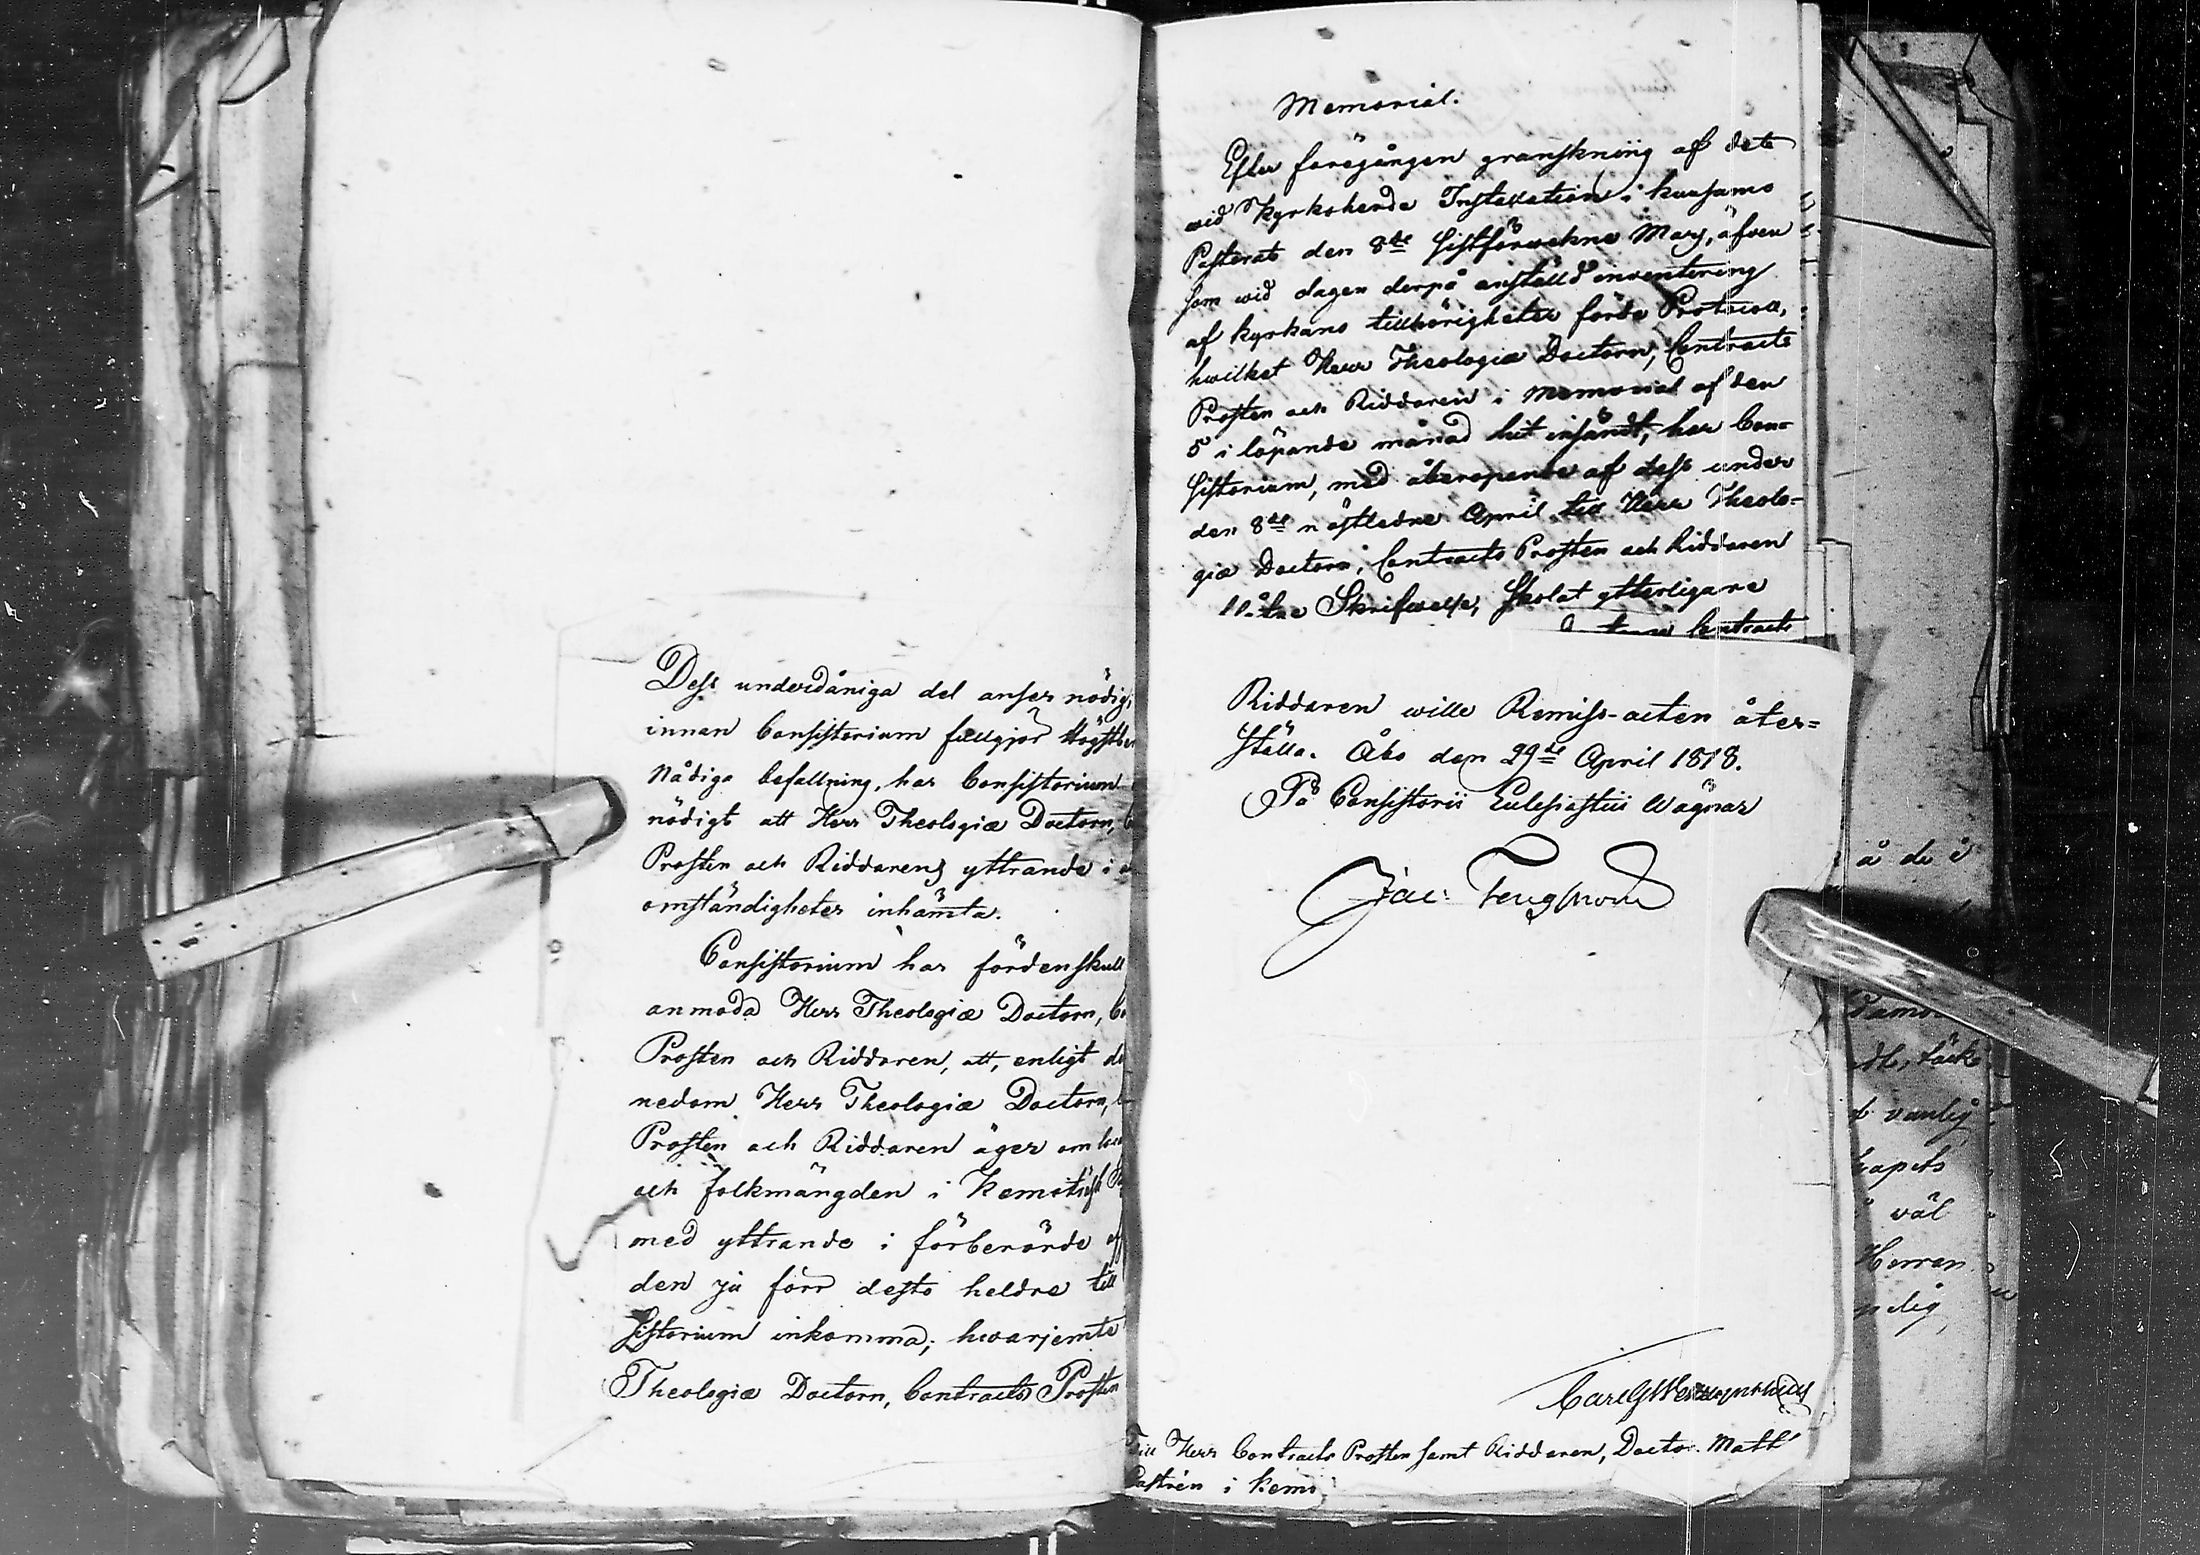 Dess underdåniga del anser nödig,
innan Consistorium fullgjör Högstber
Nådiga befallning, har Consistorium
nödigt att Herr Theologiæ Doctorn, C
Prosten och Riddarens yttrande i
omständigheter inhämta.
Consistorium har fördenskull
anmoda Herr Theologiæ Doctorn, Co
Prosten och Riddaren, att, enligt de
nedom Herr Theologiæ Doctorn,
Prosten och Riddaren äger om
och folkmängden i Kemiträsk
med yttrande i förberörde
den ju förr desto heldre till
sistorium inkomma; hvarjemte
Theologiæ Doctorn, Contracts Prosten
Memorial.
Efter föregången granskning af dets
wid Kyrkoherde Installation i Kuusamo
Pastorat den 8de sistförwekne Marj, äfven
som wid dagen derpå anställd inventering
af kyrkans tillhörigheter förde Protocoll,
hwilket Herr Theologiæ Doctorn, Contracts
Prosten och Riddaren i Memorial af den
5 i löpande månad hit insändt, har Con-
sistorium, med åberopande af dess under
den 8de nästledne April till Herr Theolo-
giæ Doctorn, Contracts Prosten och Riddaren
aflåtne Skrifwelse, skolat ytterligare
Contracts
Riddaren wille Remiss-acten åter-
ställa. Åbo den 29de April 1818.
På Consistorii Eclesiastici Wägnar
Jac: Tengström
Till Herr Contracts Prosten samt Riddaren, Doctor Matt
Castrén i Kemi
å de i
vanlig
väl
Herren